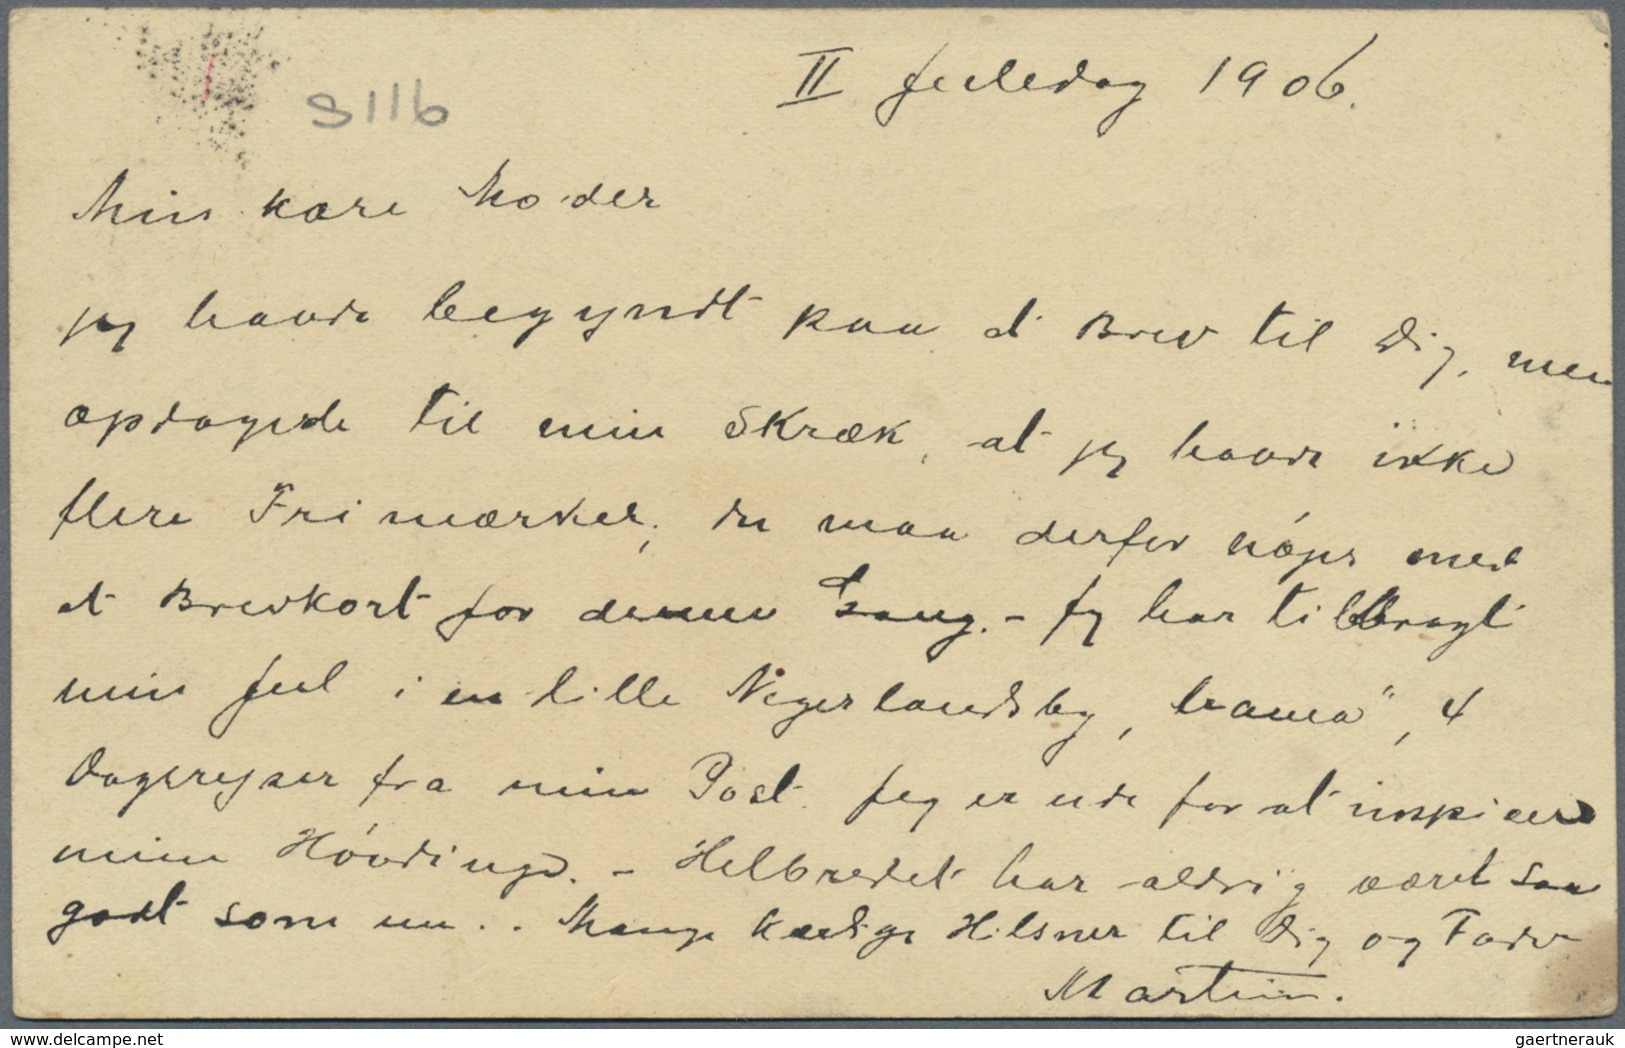 II Juledag 1906.
9116
Min kære Moder
jeg havde begyndt paa et Brev til Dig, men
opdagede til min Skræk, at jeg havde ikke
flere Frimærker; du maa derfor nøjes med
et Brevkort for denne Gang. – Jeg har tilbragt
min Jul i en lille Negerlandsby, 4
Dagsrejser fra min Post. Jeg er ude for at inspicere
mine Høvdinge. – Helbredet har aldrig været saa
godt som nu. . Mange kærlige Hilsner til Dig og Fader
Martin.
www.delcampe.net
gaertnerauk